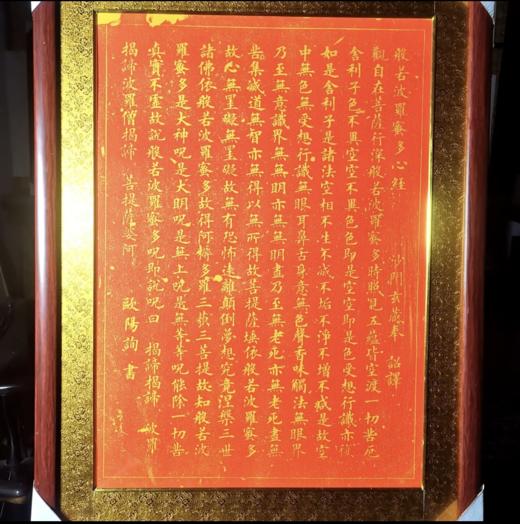 般若波羅蜜多心經 沙門玄奘奉 詔譯
觀自在菩薩行深般若波羅蜜多時照見五蘊皆空渡一切苦厄
舍利子色不異空空不異色色即是空空即是色受想行識亦復
如是舍利子是諸法空相不生不滅不垢不淨不增不減是故空
中無色無受想行識無眼耳鼻舌身意無色聲香味觸法無眼界
乃至無意識界無無明亦無無明盡乃至無老死亦無老死盡無
苦集滅道無智亦無得以無所得故菩提薩埵依般若波羅蜜多
故心無罣礙無罣礙故無有恐怖遠離顛倒夢想究竟涅槃三世
諸佛依般若波羅蜜多故得阿耨多羅三藐三菩提故知般若波
羅蜜多是大神呪是大明呪是無上呪是無等等呪能除一切苦
真實不虛故說般若波羅蜜多呪即說呪曰 揭諦揭諦 波羅
揭諦波羅僧揭諦 菩提薩婆訶 歐陽詢 書